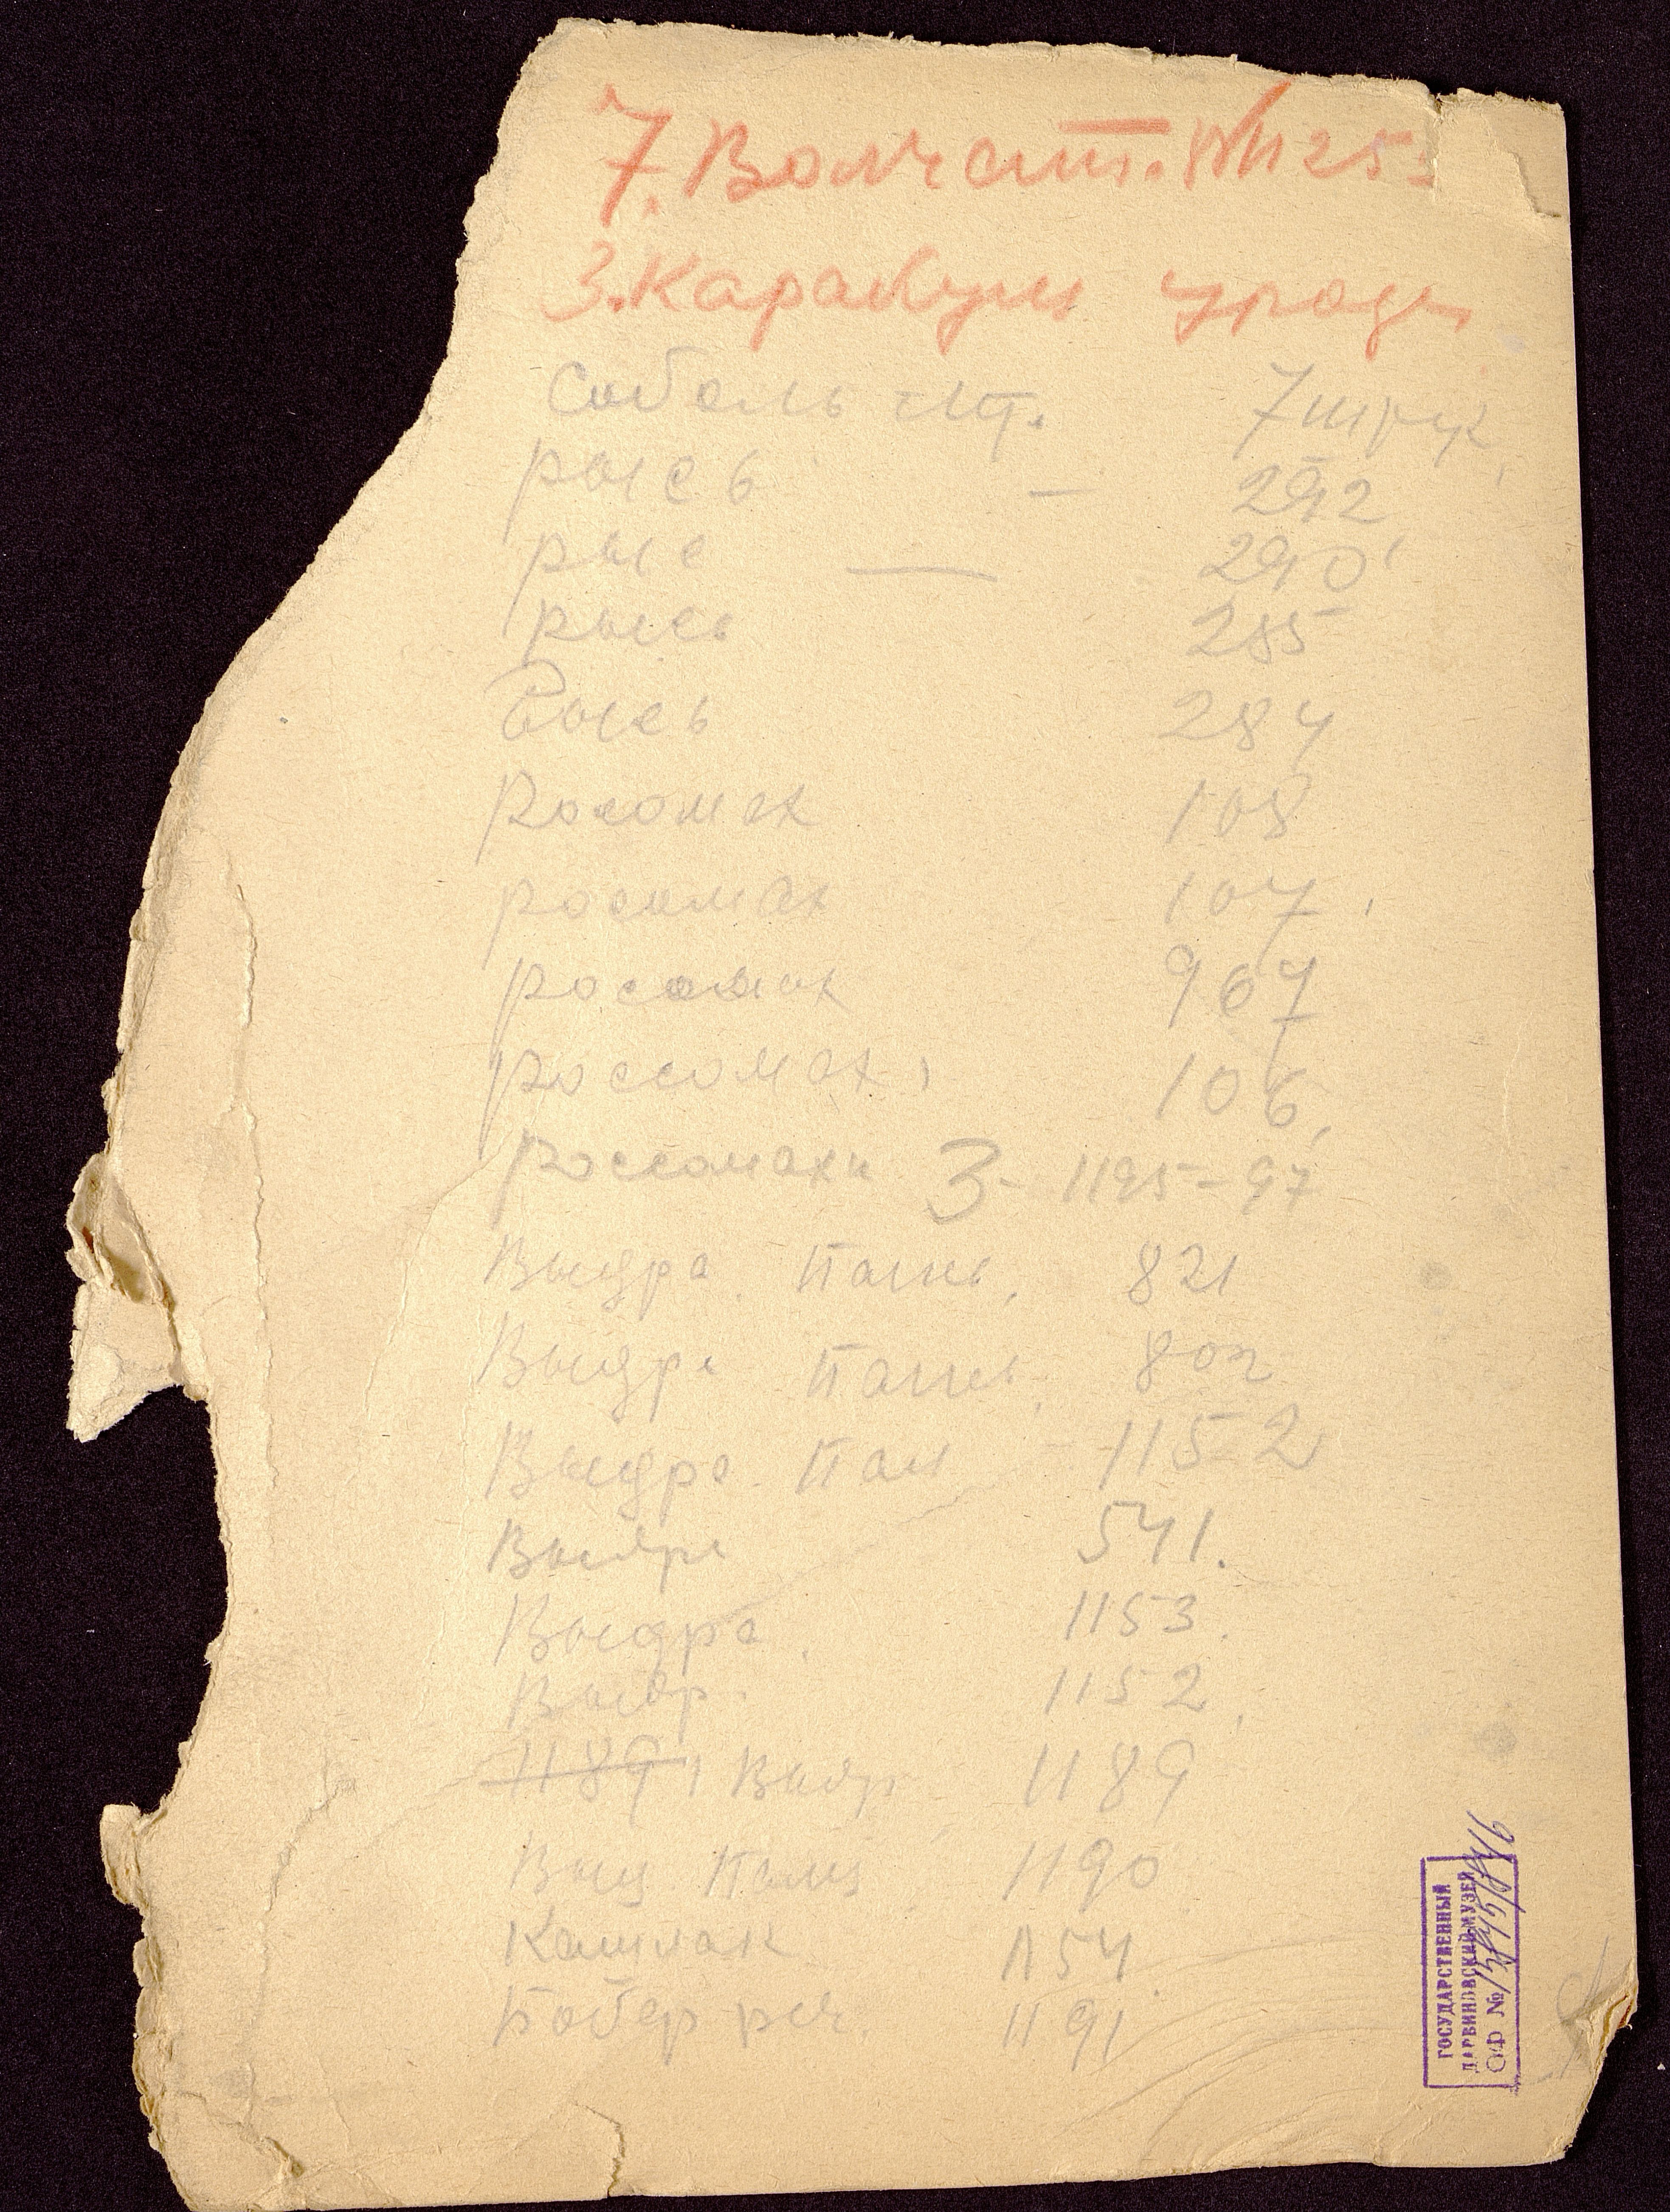 7. Волч
3. Каракуль урод
Соболь шт. 7 штук
рысь — 292
рыс — 290
рысь 285
Рысь 284
Росомах 108
росомах 107
росомах 967
россомах 106
россомахи 3 - 1195-97
Выдра 821
Выдра 802
Выдра 1152
Выдра 541.
Выдра. 1153.
Выдр. 1152
1189 1 Выдр 1189
Выд 1190
Кашлак 1154
Бобер реч. 1191
ГОСУДАРСТВЕННЫЙ
ДАРВИНОВСКИЙ МУЗЕЙ
ОФ №